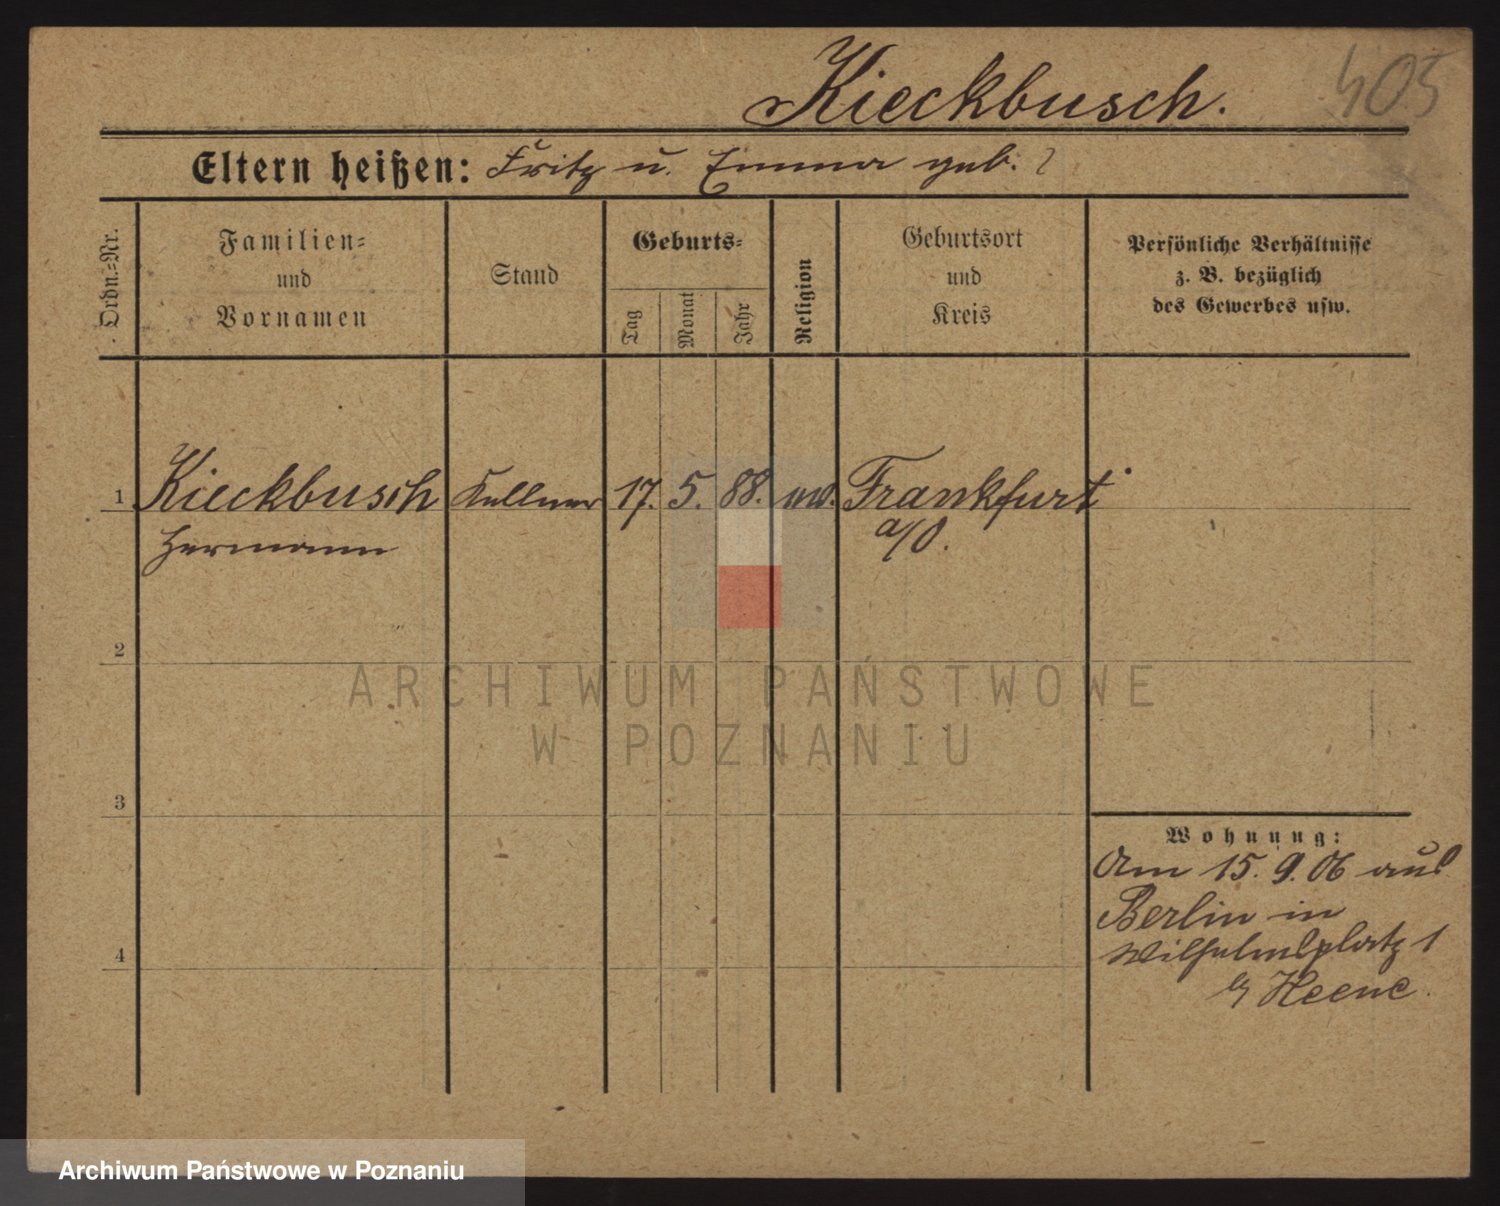 Kieckbusch. 405
Eltern heißen: Fritz u. Emma geb. ?
Ordn.=Nr.
Familien=
und
Vornamen
Stand
Geburts=
Tag
Monat
Jahr
Religion
Geburtsort
und
Kreis
Persönliche Verhältnisse
z. B. bezüglich
des Gewerbes usw.
1 Kieckbusch Kellner 17. 5. 88. ev. Frankfurt
Hermann a/O.
2
ARCHIWUM PAŃSTWOWE
W POZNANIU
3
Wohnung:
Am 15. 9. 06 aus
Berlin in
4 Wilhelmsplatz 1
b/ Heene.
Archiwum Państwowe w Poznaniu